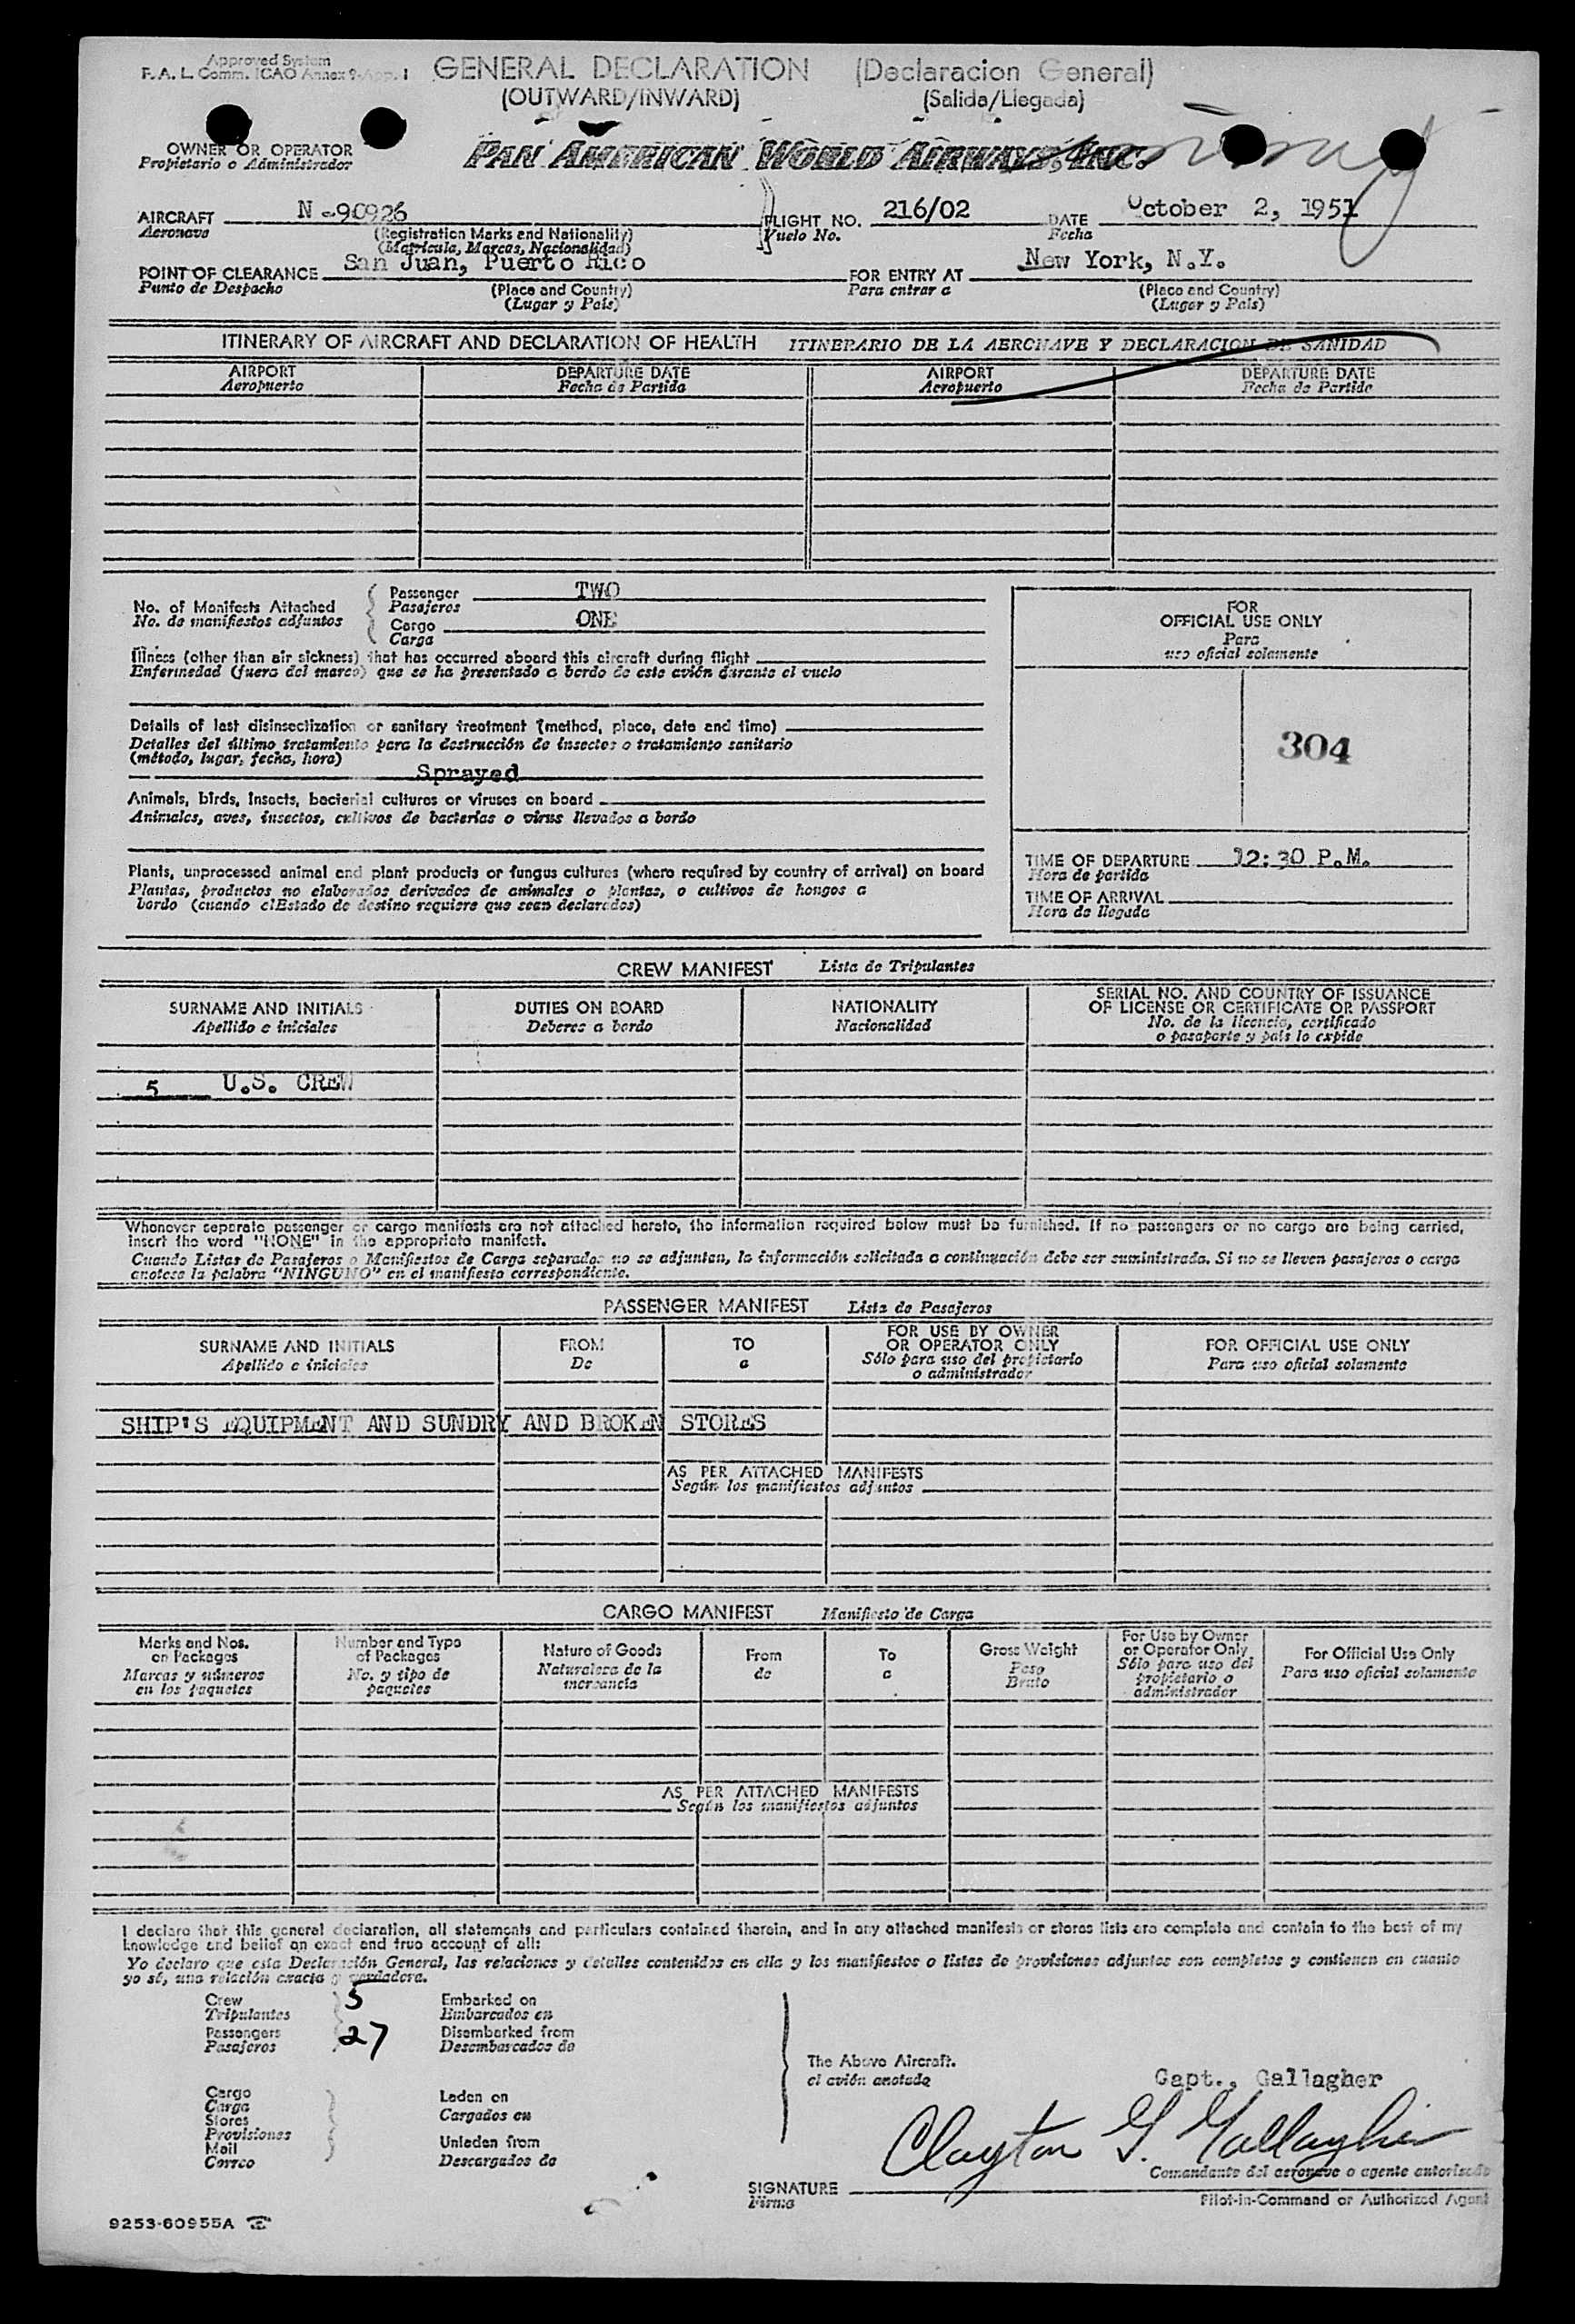 Approved System
F. A. L. Comm. ICAO Annex 9-App. 1
GENERAL DECLARATION (Declaracion General)
(OUTWARD/INWARD) (Salida/Llegada)
OWNER OR OPERATOR
Propietario o Administrador
PAN AMERICAN WORLD AIRWAYS, INC.
AIRCRAFT N-90926 FLIGHT NO. 216/02 DATE October 2, 1951
Aeronave (Registration Marks and Nationality) Vuelo No. Fecha
(Matricula, Marcas, Nacionalidad)
POINT OF CLEARANCE San Juan, Puerto Rico FOR ENTRY AT New York, N.Y.
Punto de Despacho (Place and Country) Para entrar a (Place and Country)
(Lugar y País) (Lugar y País)
ITINERARY OF AIRCRAFT AND DECLARATION OF HEALTH ITINERARIO DE LA AERONAVE Y DECLARACION DE SANIDAD
AIRPORT DEPARTURE DATE AIRPORT DEPARTURE DATE
Aeropuerto Fecha de Partida Aeropuerto Fecha de Partida
No. of Manifests Attached Passenger TWO
No. de manifiestos adjuntos Pasajeros
Cargo ONE
Carga
Illness (other than air sickness) that has occurred aboard this aircraft during flight
Enfermedad (fuera del mareo) que se ha presentado a bordo de este avión durante el vuelo
Details of last disinsectization or sanitary treatment (method, place, date and time)
Detalles del último tratamiento para la destrucción de insectos o tratamiento sanitario
(método, lugar, fecha, hora)
Sprayed
Animals, birds, insects, bacterial cultures or viruses on board
Animales, aves, insectos, cultivos de bacterias o virus llevados a bordo
Plants, unprocessed animal and plant products or fungus cultures (where required by country of arrival) on board
Plantas, productos no elaborados derivados de animales o plantas, o cultivos de hongos a
bordo (cuando elEstado de destino requiere que sean declarados)
FOR
OFFICIAL USE ONLY
Para
uso oficial solamente
304
TIME OF DEPARTURE 12:30 P.M.
Hora de partida
TIME OF ARRIVAL
Hora de llegada
CREW MANIFEST Lista de Tripulantes
SURNAME AND INITIALS DUTIES ON BOARD NATIONALITY SERIAL NO. AND COUNTRY OF ISSUANCE
OF LICENSE OR CERTIFICATE OR PASSPORT
Apellido e iniciales Deberes a bordo Nacionalidad No. de la licencia, certificado
o pasaporte y país lo expide
5 U.S. CREW
Whenever separate passenger or cargo manifests are not attached hereto, the information required below must be furnished. If no passengers or no cargo are being carried,
insert the word "NONE" in the appropriate manifest.
Cuando Listas de Pasajeros o Manifiestos de Carga separados no se adjuntan, la información solicitada a continuación debe ser suministrada. Si no se lleven pasajeros o carga
anotese la palabra "NINGUNO" en el manifiesto correspondiente.
PASSENGER MANIFEST Lista de Pasajeros
SURNAME AND INITIALS FROM TO FOR USE BY OWNER
OR OPERATOR ONLY FOR OFFICIAL USE ONLY
Apellido e iniciales De a Sólo para uso del propietario
o administrador Para uso oficial solamente
SHIP'S EQUIPMENT AND SUNDRY AND BROKEN STORES
AS PER ATTACHED MANIFESTS
Según los manifiestos adjuntos
CARGO MANIFEST Manifiesto de Carga
Marks and Nos.
on Packages
Marcas y números
en los paquetes
Number and Type
of Packages
No. y tipo de
paquetes
Nature of Goods
Naturaleza de la
mercancia
From
de
To
a
Gross Weight
Peso
Bruto
For Use by Owner
or Operator Only
Sólo para uso del
propietario o
administrador
For Official Use Only
Para uso oficial solamente
AS PER ATTACHED MANIFESTS
Según los manifiestos adjuntos
I declare that this general declaration, all statements and particulars contained therein, and in any attached manifests or stores lists are complete and contain to the best of my
knowledge and belief an exact and true account of all:
Yo declaro que esta Declaración General, las relaciones y detalles contenidos en ella y los manifiestos o listas de provisiones adjuntos son completos y contienen en cuanto
yo sé, una relación exacta y verdadera.
Crew 5 Embarked on
Tripulantes Embarcados en
Passengers 27 Disembarked from
Pasajeros Desembarcados de
The Above Aircraft.
el avión anotado
Cargo
Carga
Stores
Provisiones
Mail
Correo
Laden on
Cargados en
Unladen from
Descargados de
Capt., Gallagher
Clayton G. Gallagher
Comandante del aeronave o agente autorisado
SIGNATURE
Firma
Pilot-in-Command or Authorized Agent
9253-60955A